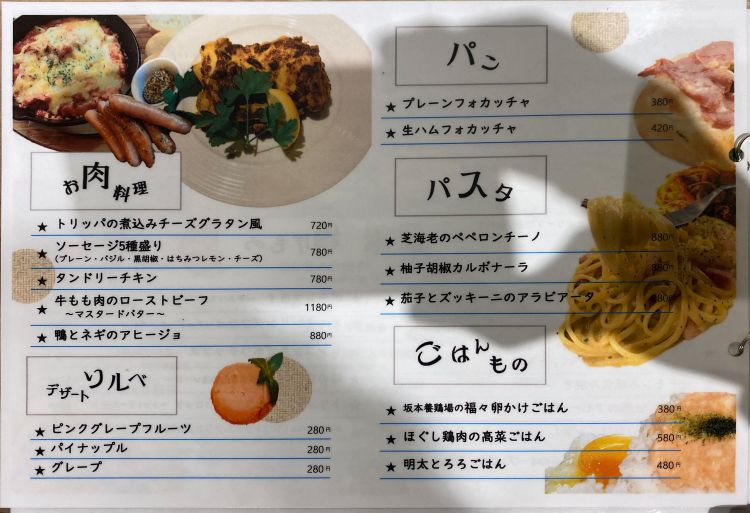 お肉料理
★ トリッパの煮込みチーズグラタン風 720円
★ ソーセージ5種盛り 780円
(プレーン・バジル・黒胡椒・はちみつレモン・チーズ)
★ タンドリーチキン 780円
★ 牛もも肉のローストビーフ 1180円
～マスタードバター～
★ 鴨とネギのアヒージョ 880円
デザート ソルベ
★ ピンクグレープフルーツ 280円
★ パイナップル 280円
★ グレープ 280円
パン
★ プレーンフォカッチャ 380円
★ 生ハムフォカッチャ 420円
パスタ
★ 芝海老のペペロンチーノ 880円
★ 柚子胡椒カルボナーラ 880円
★ 茄子とズッキーニのアラビアータ 880円
ごはんもの
★ 坂本養鶏場の福々卵かけごはん 380円
★ ほぐし鶏肉の高菜ごはん 580円
★ 明太とろろごはん 480円